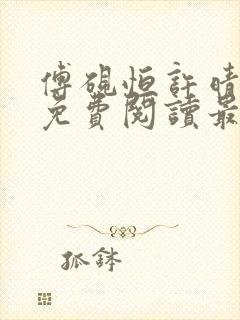 傅硯恒許晴
免費閱讀最
孤鉢